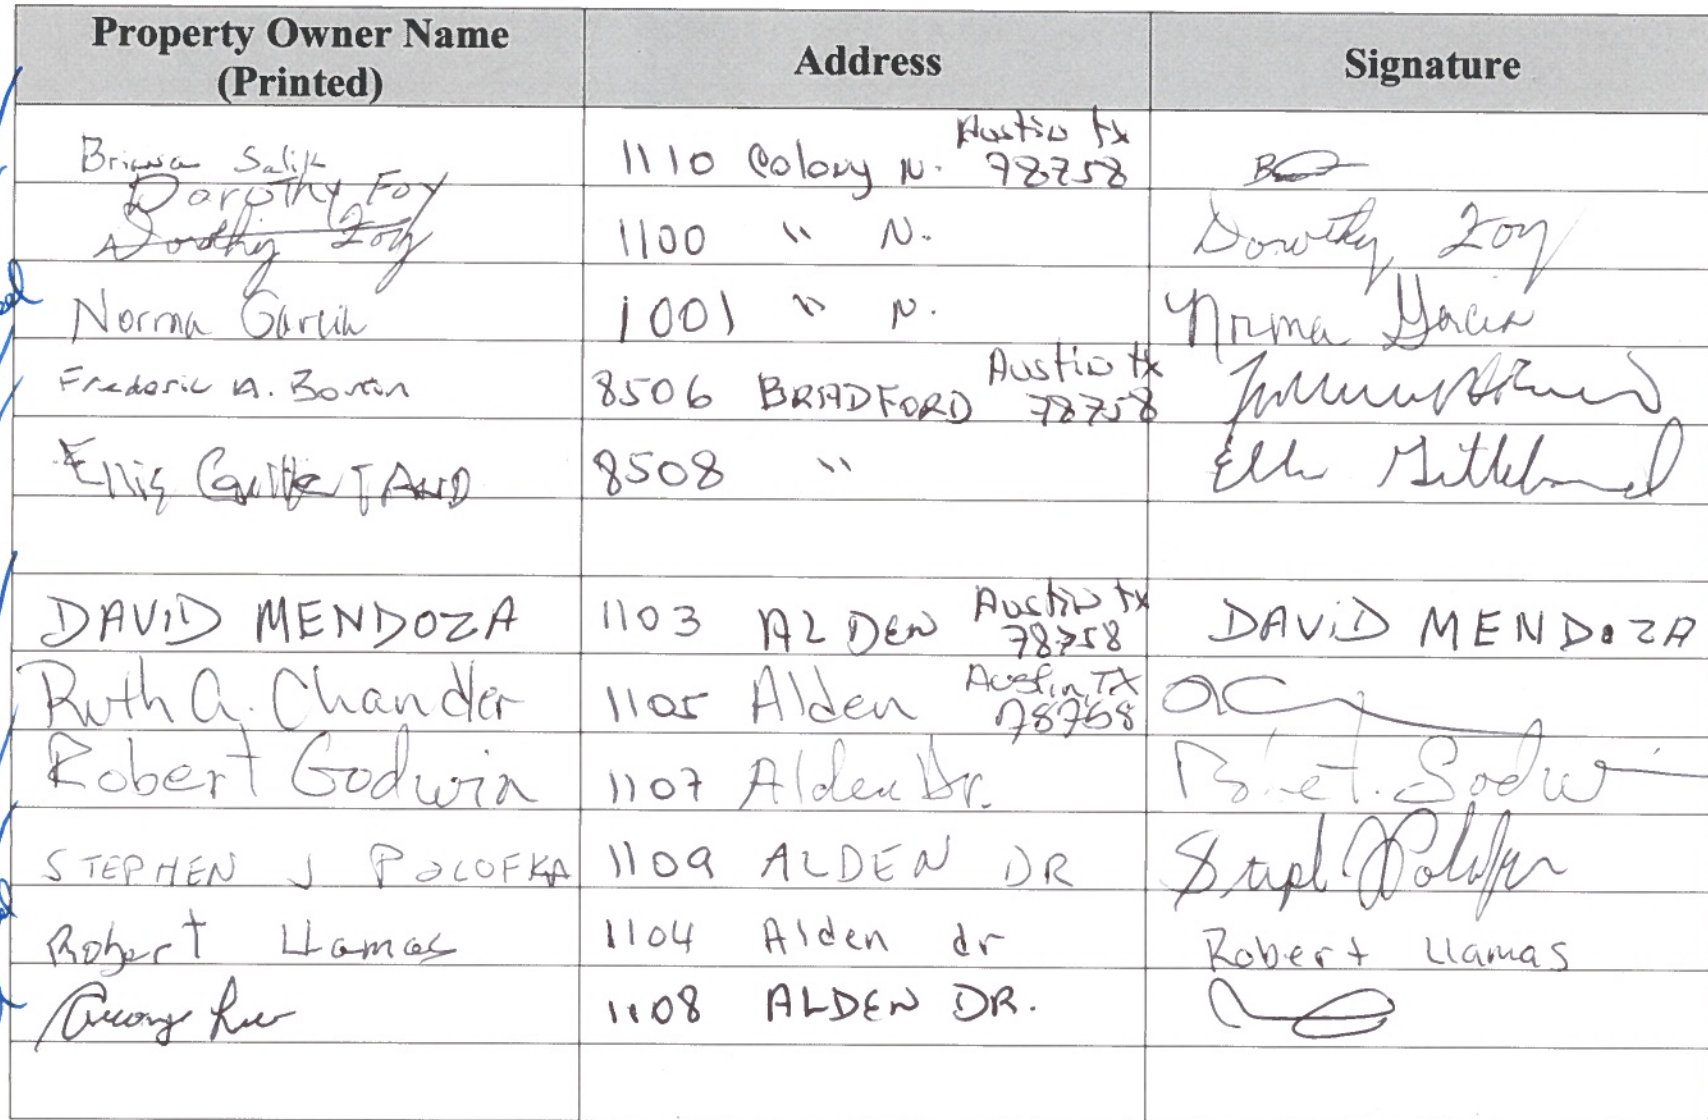 Property Owner Name
(Printed)
Address
Signature
Briana Salik 1110 Colony N. Austin tx 78758
Dorothy Foy
Dorothy Foy 1100 " N. Dorothy Foy
Norma Garcia 1001 " N. Norma Garcia
Frederic A. 8506 BRADFORD Austin tx 78758
Ellis 8508 "
DAVID MENDOZA 1103 ALDEN Austin tx 78758 DAVID MENDOZA
Ruth A. Chandler 1105 Alden Austin, TX 78758
Robert Godwin 1107 Alden Dr. Robert Godwin
STEPHEN J POLOFKA 1109 ALDEN DR
Robert Llamas 1104 Alden dr Robert Llamas
George 1108 ALDEN DR.